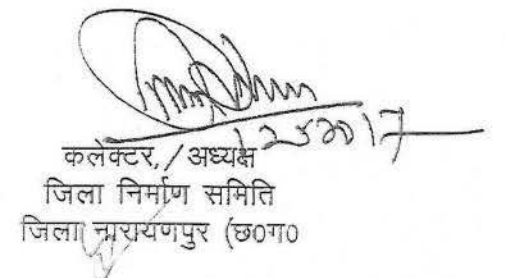 कलेक्टर, / अध्यक्ष
जिला निर्माण समिति
जिला नारायणपुर (छ0ग0